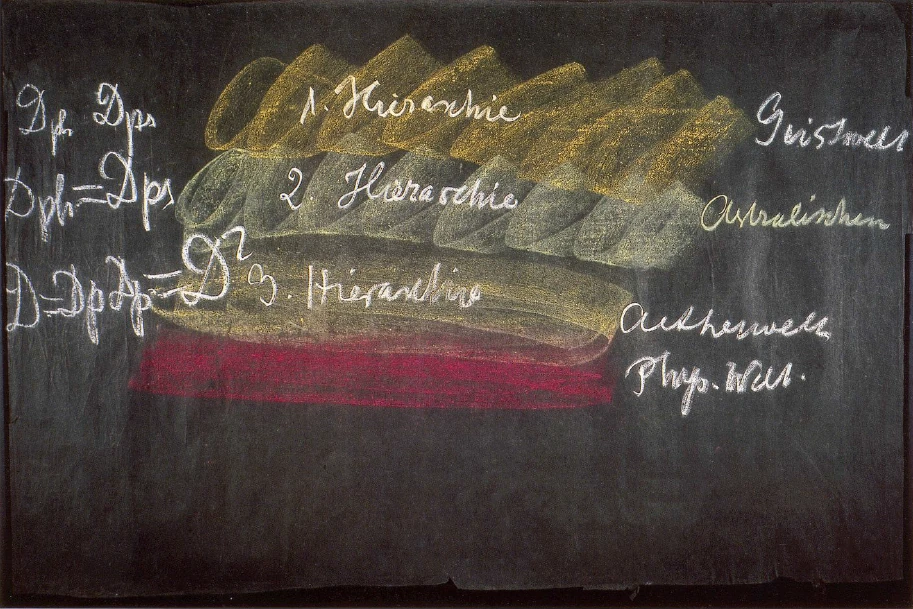 1. Hierarchie
2. Hierarchie
3. Hierarchie
Geistwelt
Astralischen
Aetherwelt
Phys. Welt.
Dph Dps
Dph = Dps
D = Dp Dp = D²